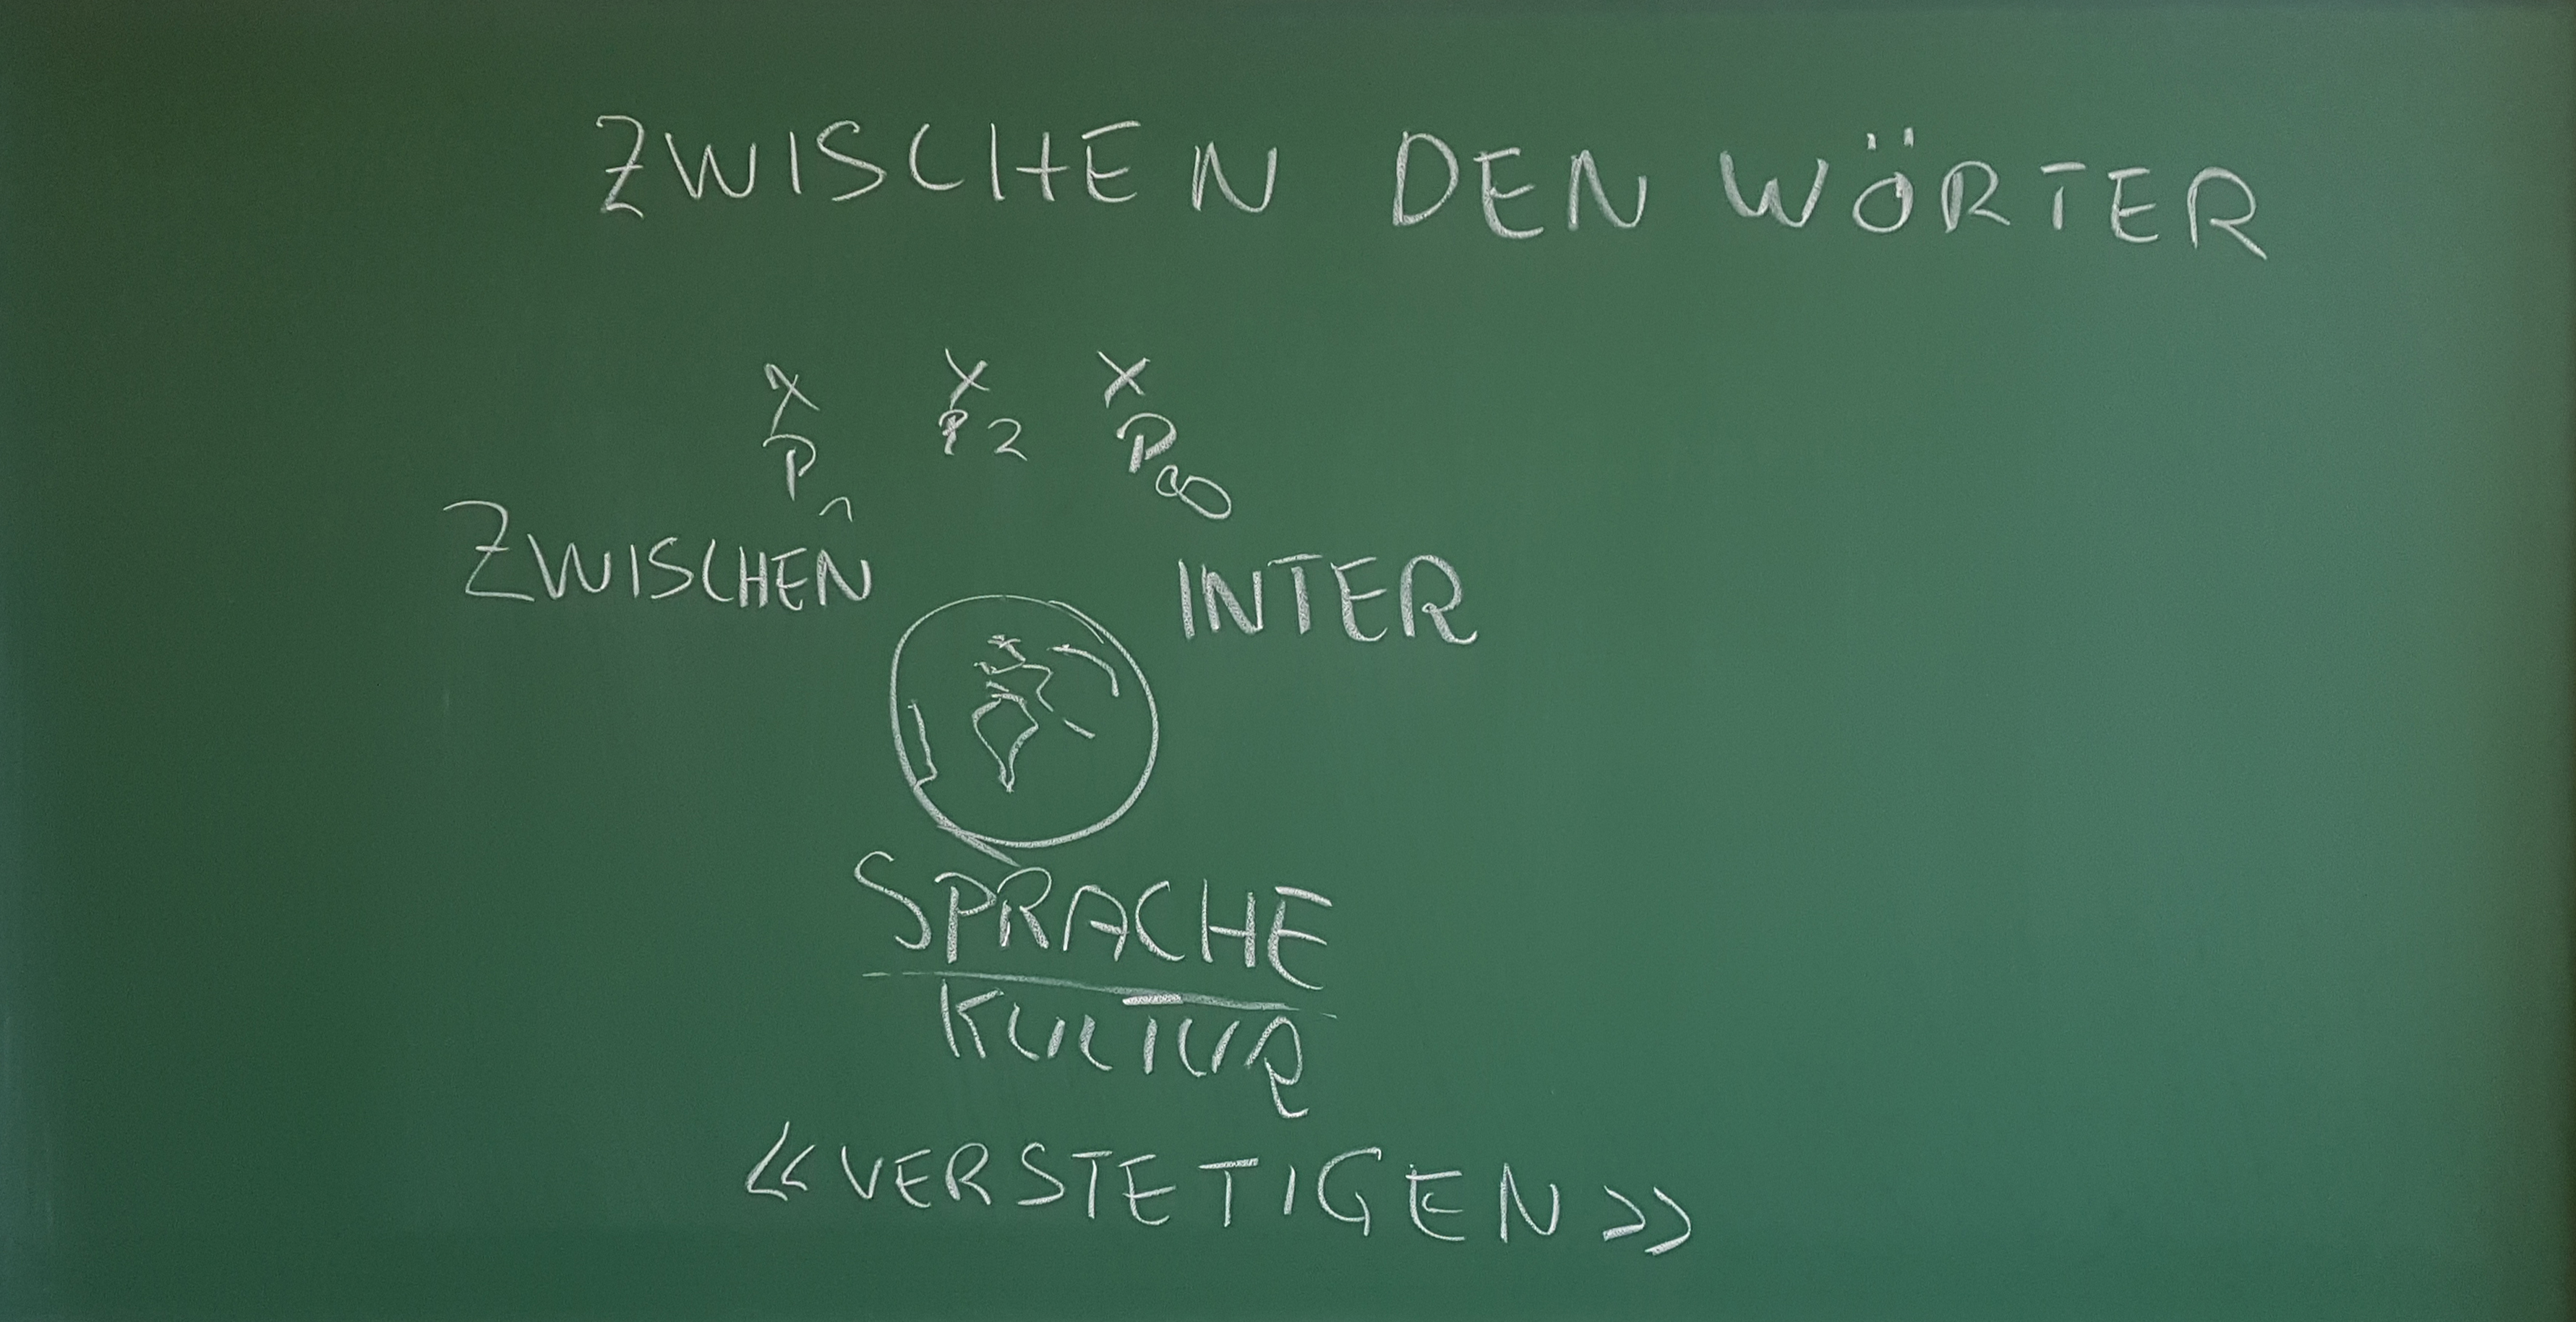 ZWISCHEN DEN WÖRTER
X X X
P P2 P∞
ZWISCHEN INTER
SPRACHE
KULTUR
«VERSTETIGEN»